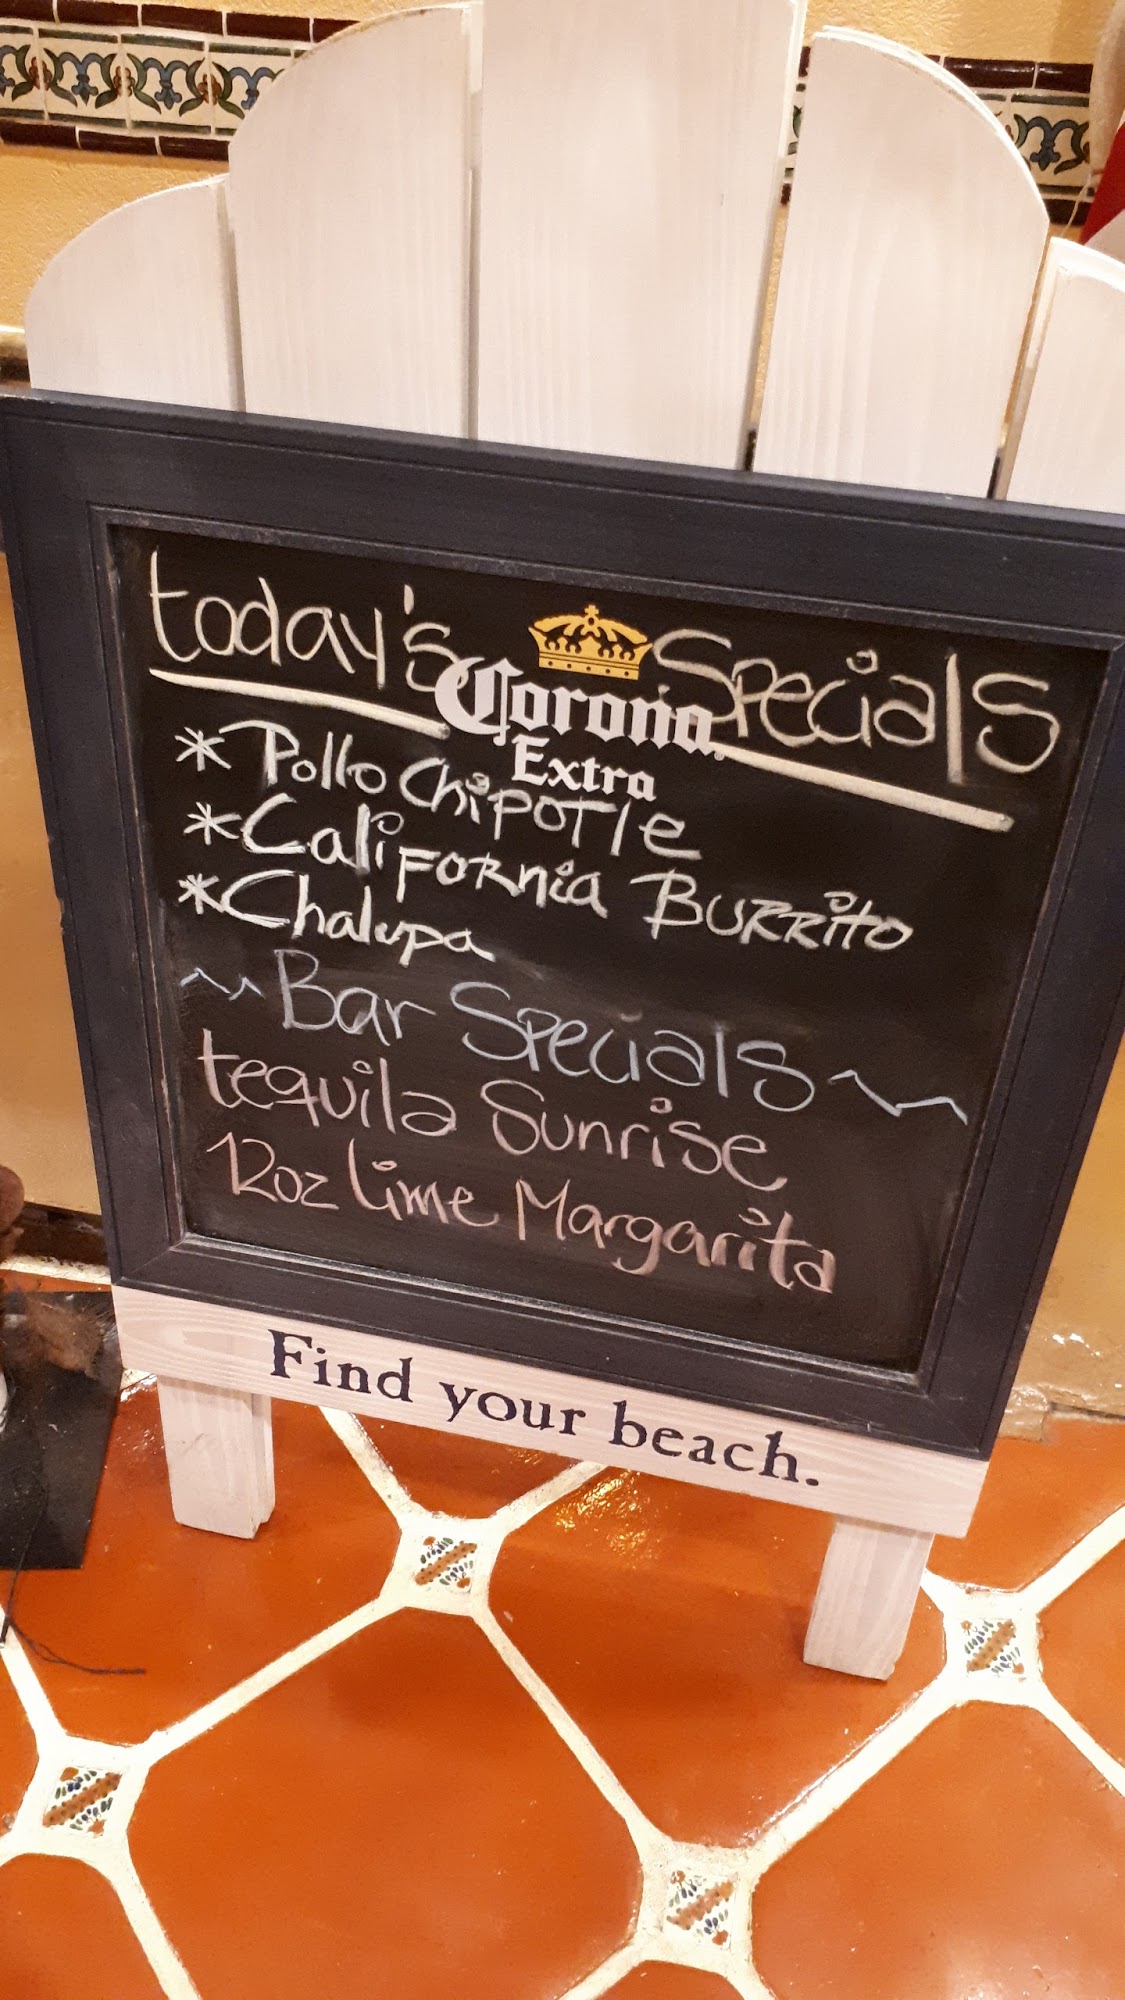 today's Specials
Corona
Extra
* Pollo ChipoTle
* CaliFORnia BURRito
* Chalupa
~~ Bar Specials ~~
tequila Sunrise
12oz lime Margarita
Find your beach.